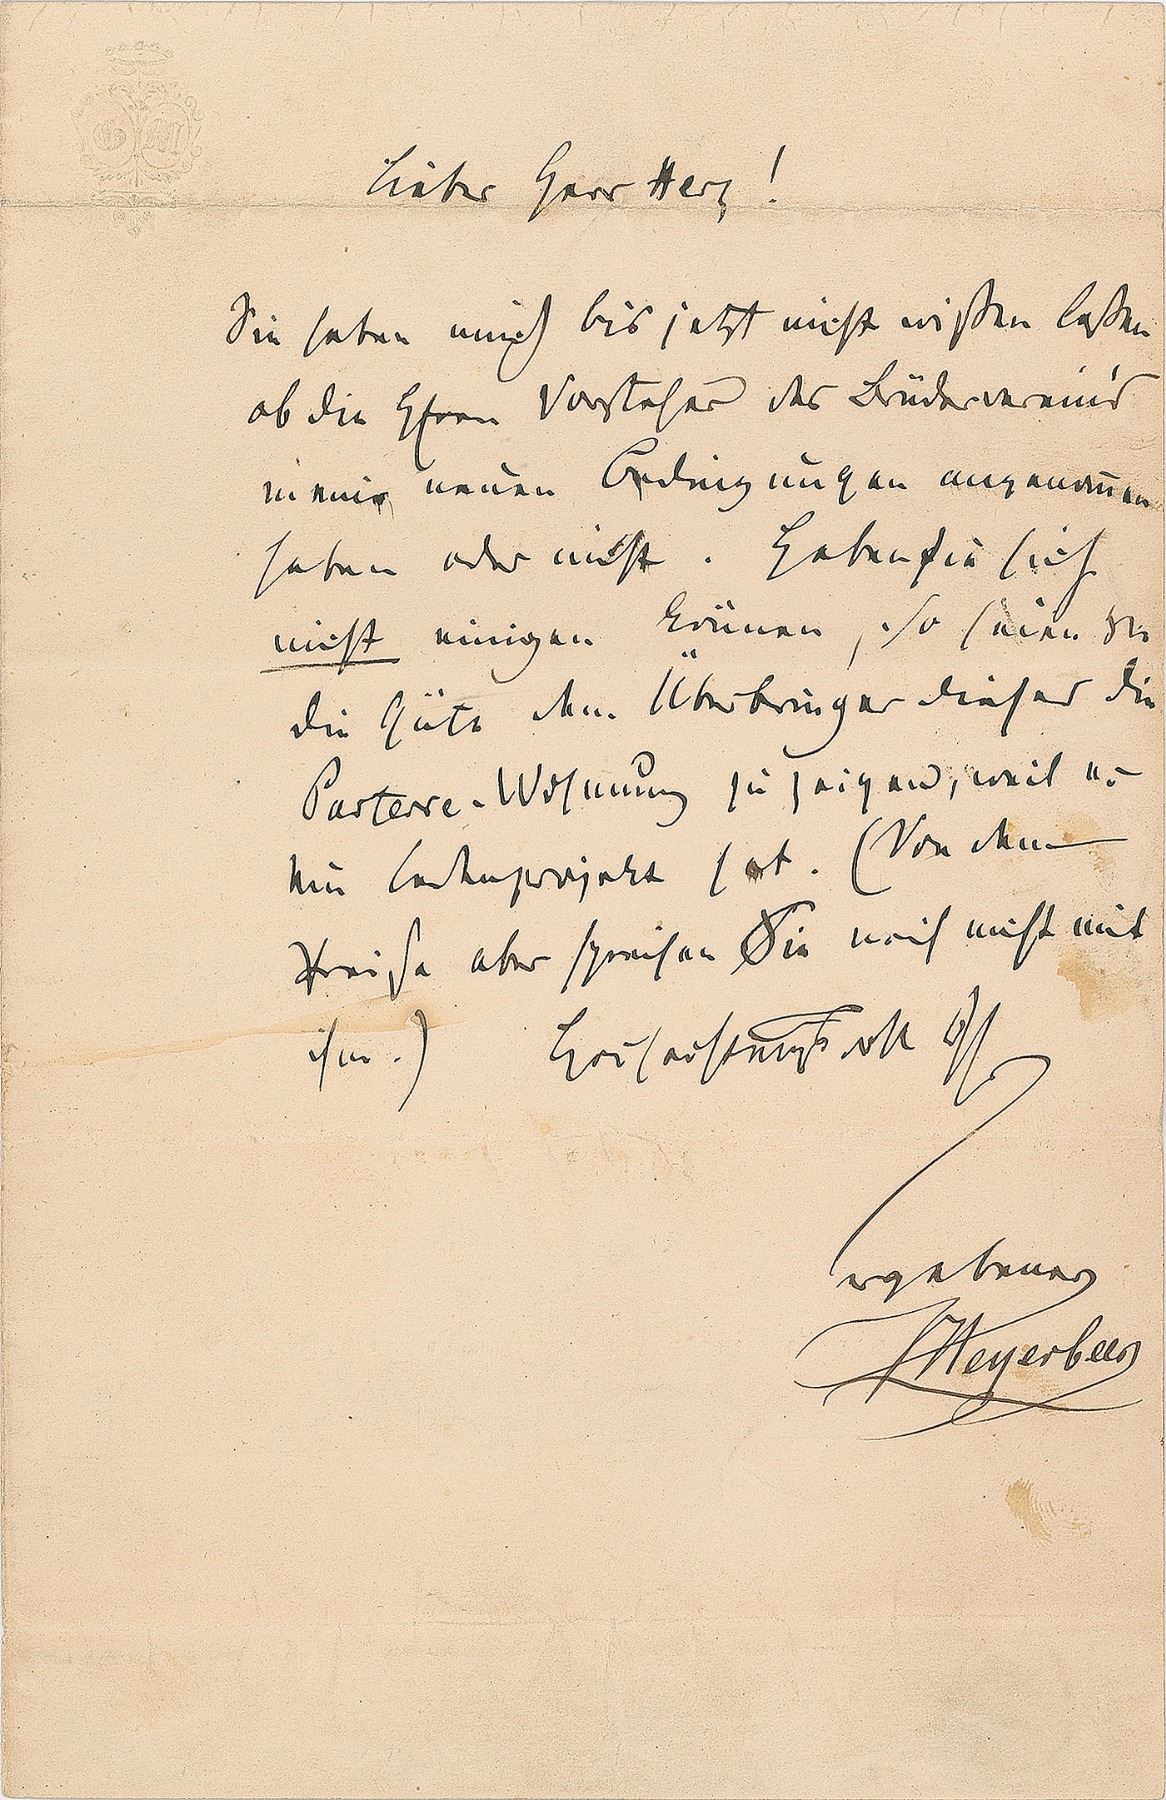 G M
Lieber Herr Herz!
Sie haben mich bis jetzt nicht wißen laßen
ob die Hrren Vorsteher des Brüdervereins
meine neuen Bedingungen angenommen
haben oder nicht. Haben sie sich
nicht einigen können, so seien Sie
die Güte dem Überbringer dieses die
Parterre-Wohnung zu zeigen, weil er
ein hat. (Von dem
Preise aber sprechen Sie noch nicht mit
ihm.) Hochachtungsvoll Ihr
ergebener
Meyerbeer